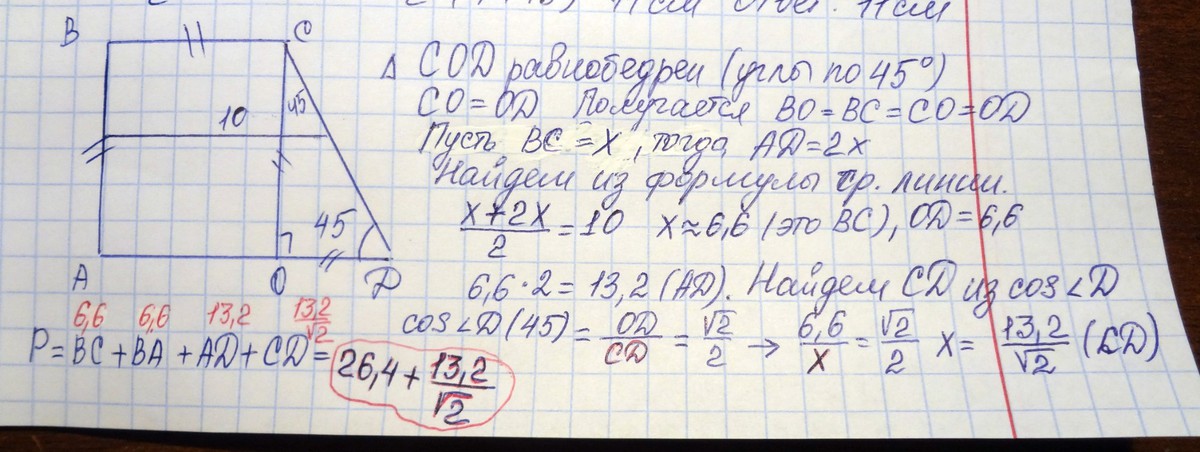 11см Ответ: 11см
B C
45
10
45
A O D
Δ COD равнобедрен (углы по 45°)
CO=OD Получается BO=BC=CO=OD
Пусть BC=x, тогда AD=2x
Найдем из формулы ср. линии.
x+2x/2=10 x≈6,6 (это BC), OD=6,6
6,6·2=13,2 (AD). Найдем CD из cos∠D
cos∠D(45)=OD/CD=√2/2→6,6/x=√2/2 x=13,2/√2 (CD)
6,6 6,6 13,2 13,2/√2
P=BC+BA+AD+CD=26,4+13,2/√2